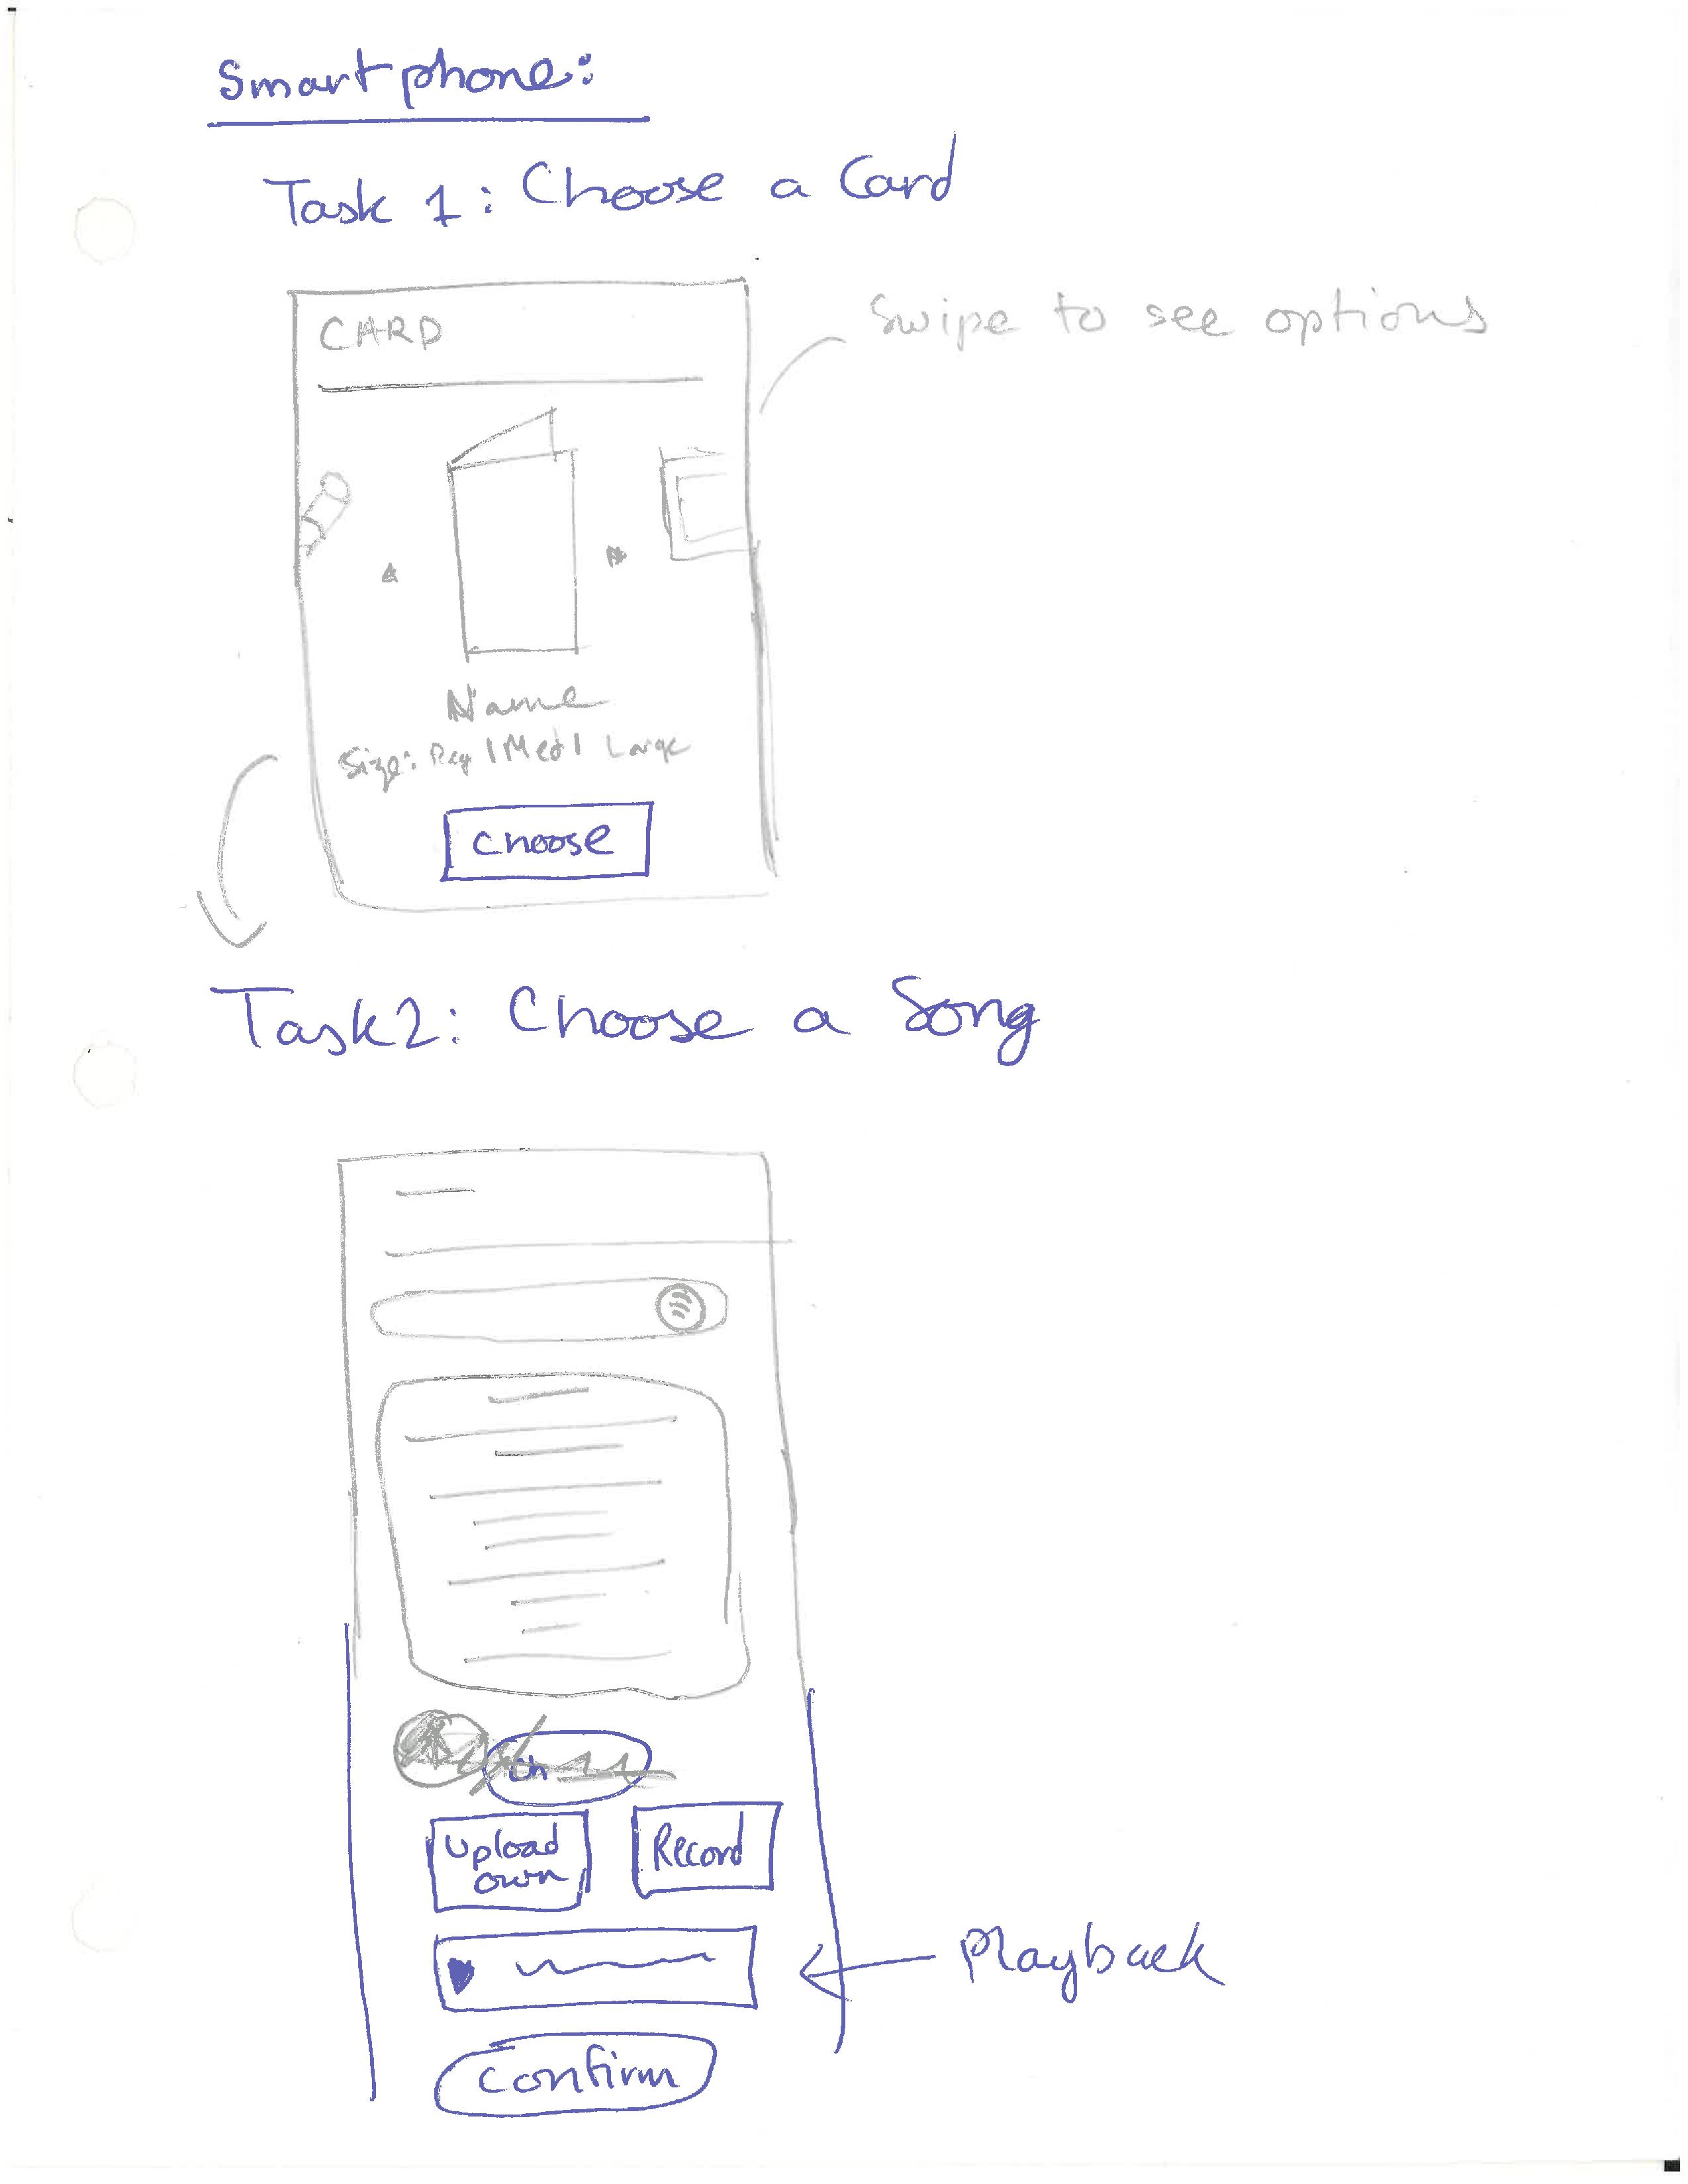 Smartphone:
Task 1: Choose a Card
CARD
Swipe to see options
Name
Size: Reg | Med | Large
choose
Task 2: Choose a Song
Upload
own
Record
Playback
Confirm